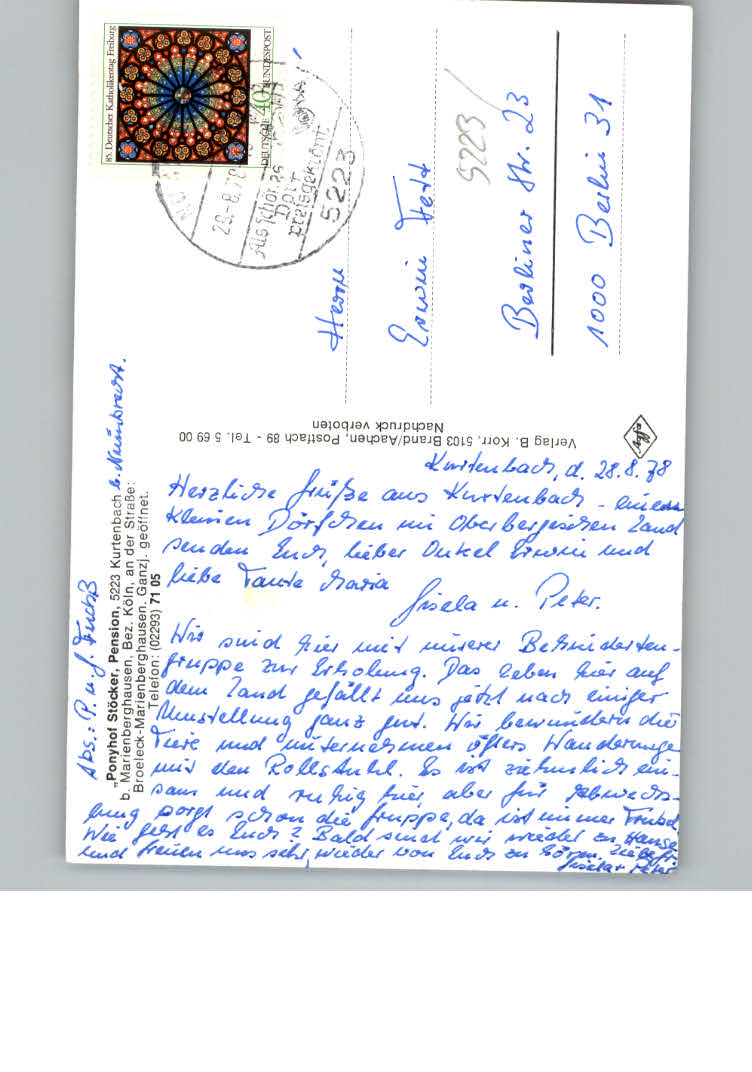 85. Deutscher Katholikentag Freiburg
DEUTSCHE BUNDESPOST
40
29.-8.78
Als Schönes
Dorf
preisgekrönt
5223
5223
Herrn
Erwin Fett
Berliner Str. 23
1000 Berlin 31
Verlag B. Korr, 5103 Brand/Aachen, Postfach 89 - Tel. 5 69 00
Nachdruck verboten
Abs.: P. u. G. Fuchß
„Ponyhof Stöcker, Pension, 5223 Kurtenbach b. Nümbrecht.
b. Marienberghausen, Bez. Köln, an der Straße:
Broeleck-Marienberghausen. Ganzj. geöffnet.
Telefon: (02293) 71 05
Kurtenbach, d. 28.8.78
Herzliche Grüße aus Kurtenbach - einem
kleinen Dörfchen im Oberbergischen Land
senden Euch, lieber Onkel Erwin und
liebe Tante Maria
Gisela u. Peter.
Wir sind hier mit unserer Behinderten-
gruppe zur Erholung. Das Leben hier auf
dem Land gefällt uns jetzt nach einiger
Umstellung ganz gut. Wir bewundern die
Tiere und unternehmen öfters Wanderunge
mit den Rollstuhl. Es ist ziehmlich ein-
sam und ruhig hier, aber für Abwechs-
lung sorgt schon die Gruppe, da ist immer Trubel
Wie geht es Euch? Bald sind wir wieder zu Hause
und freuen uns sehr, wieder von Euch zu hören.
Gisela + Peter